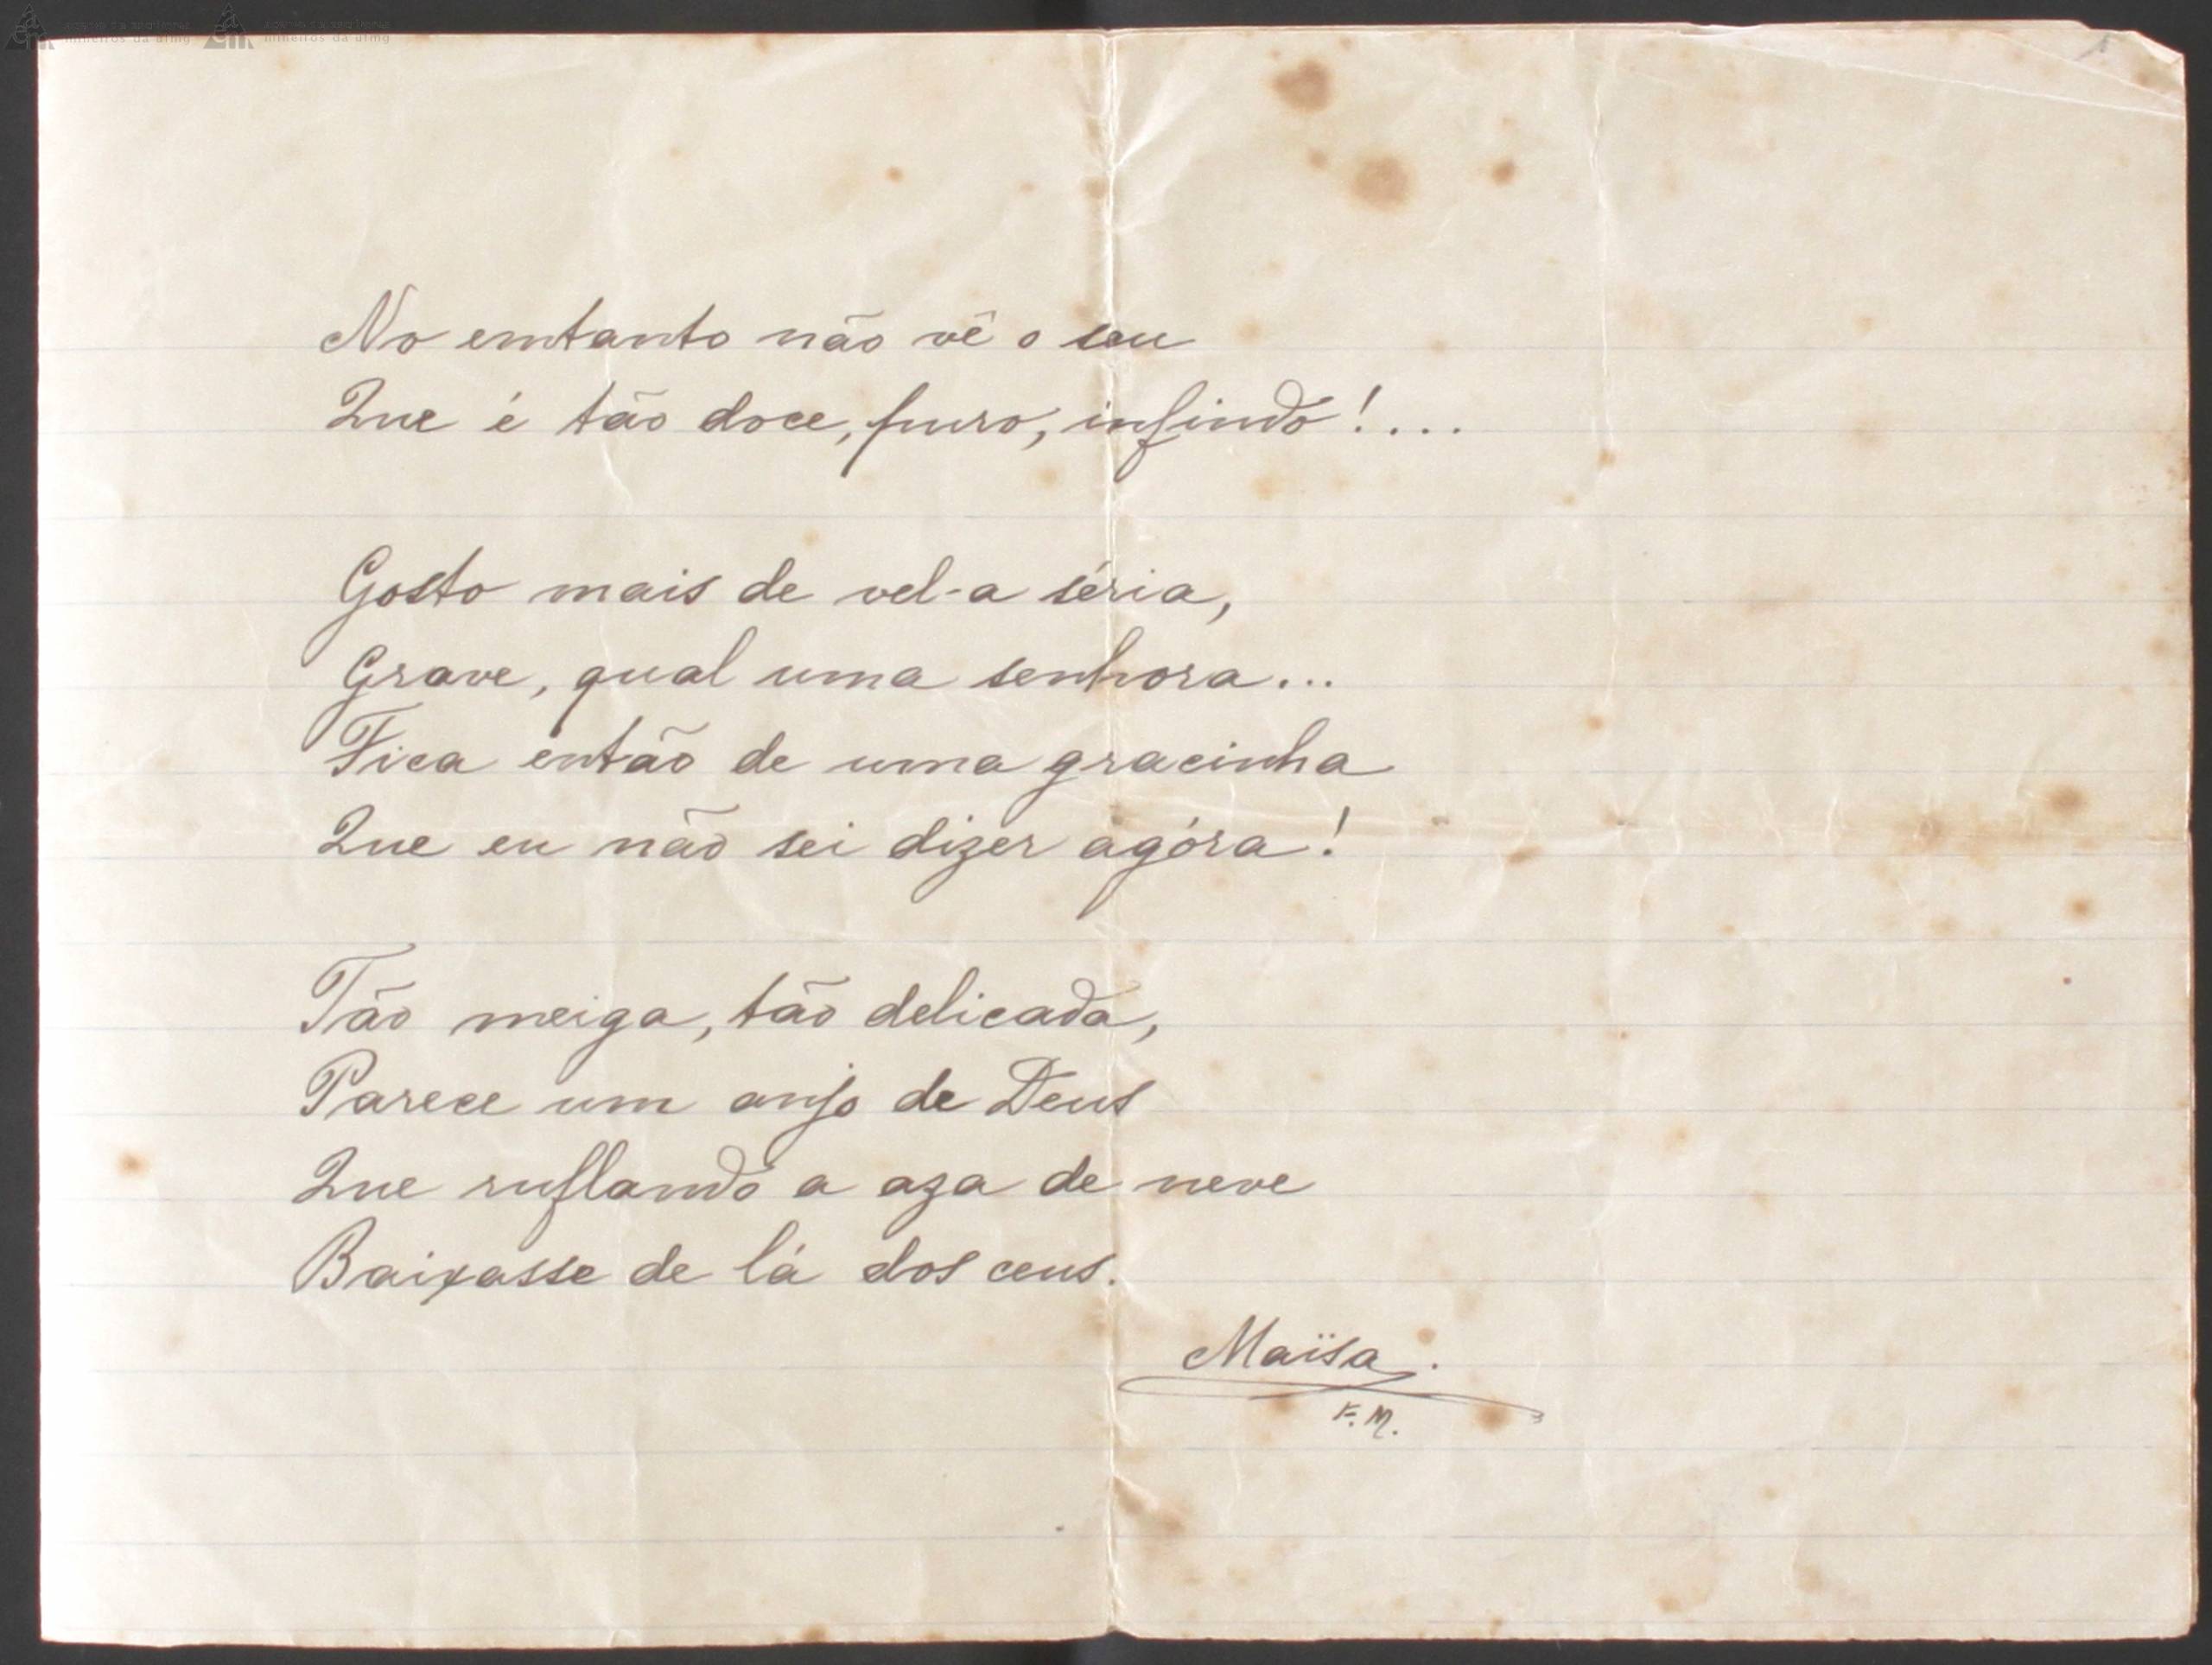 acervo de escritores
mineiros da ufmg
acervo de escritores
mineiros da ufmg
1
No emtanto não vê o seu
Que é tão doce, puro, infindo!....
Gosto mais de vel-a séria,
Grave, qual uma senhora...
Fica então de uma gracinha
Que eu não sei dizer agóra!
Tão meiga, tão delicada,
Parece um anjo de Deus
Que ruflando a aza de neve
Baixasse de lá dos ceus.
Maïsa.
F. M.